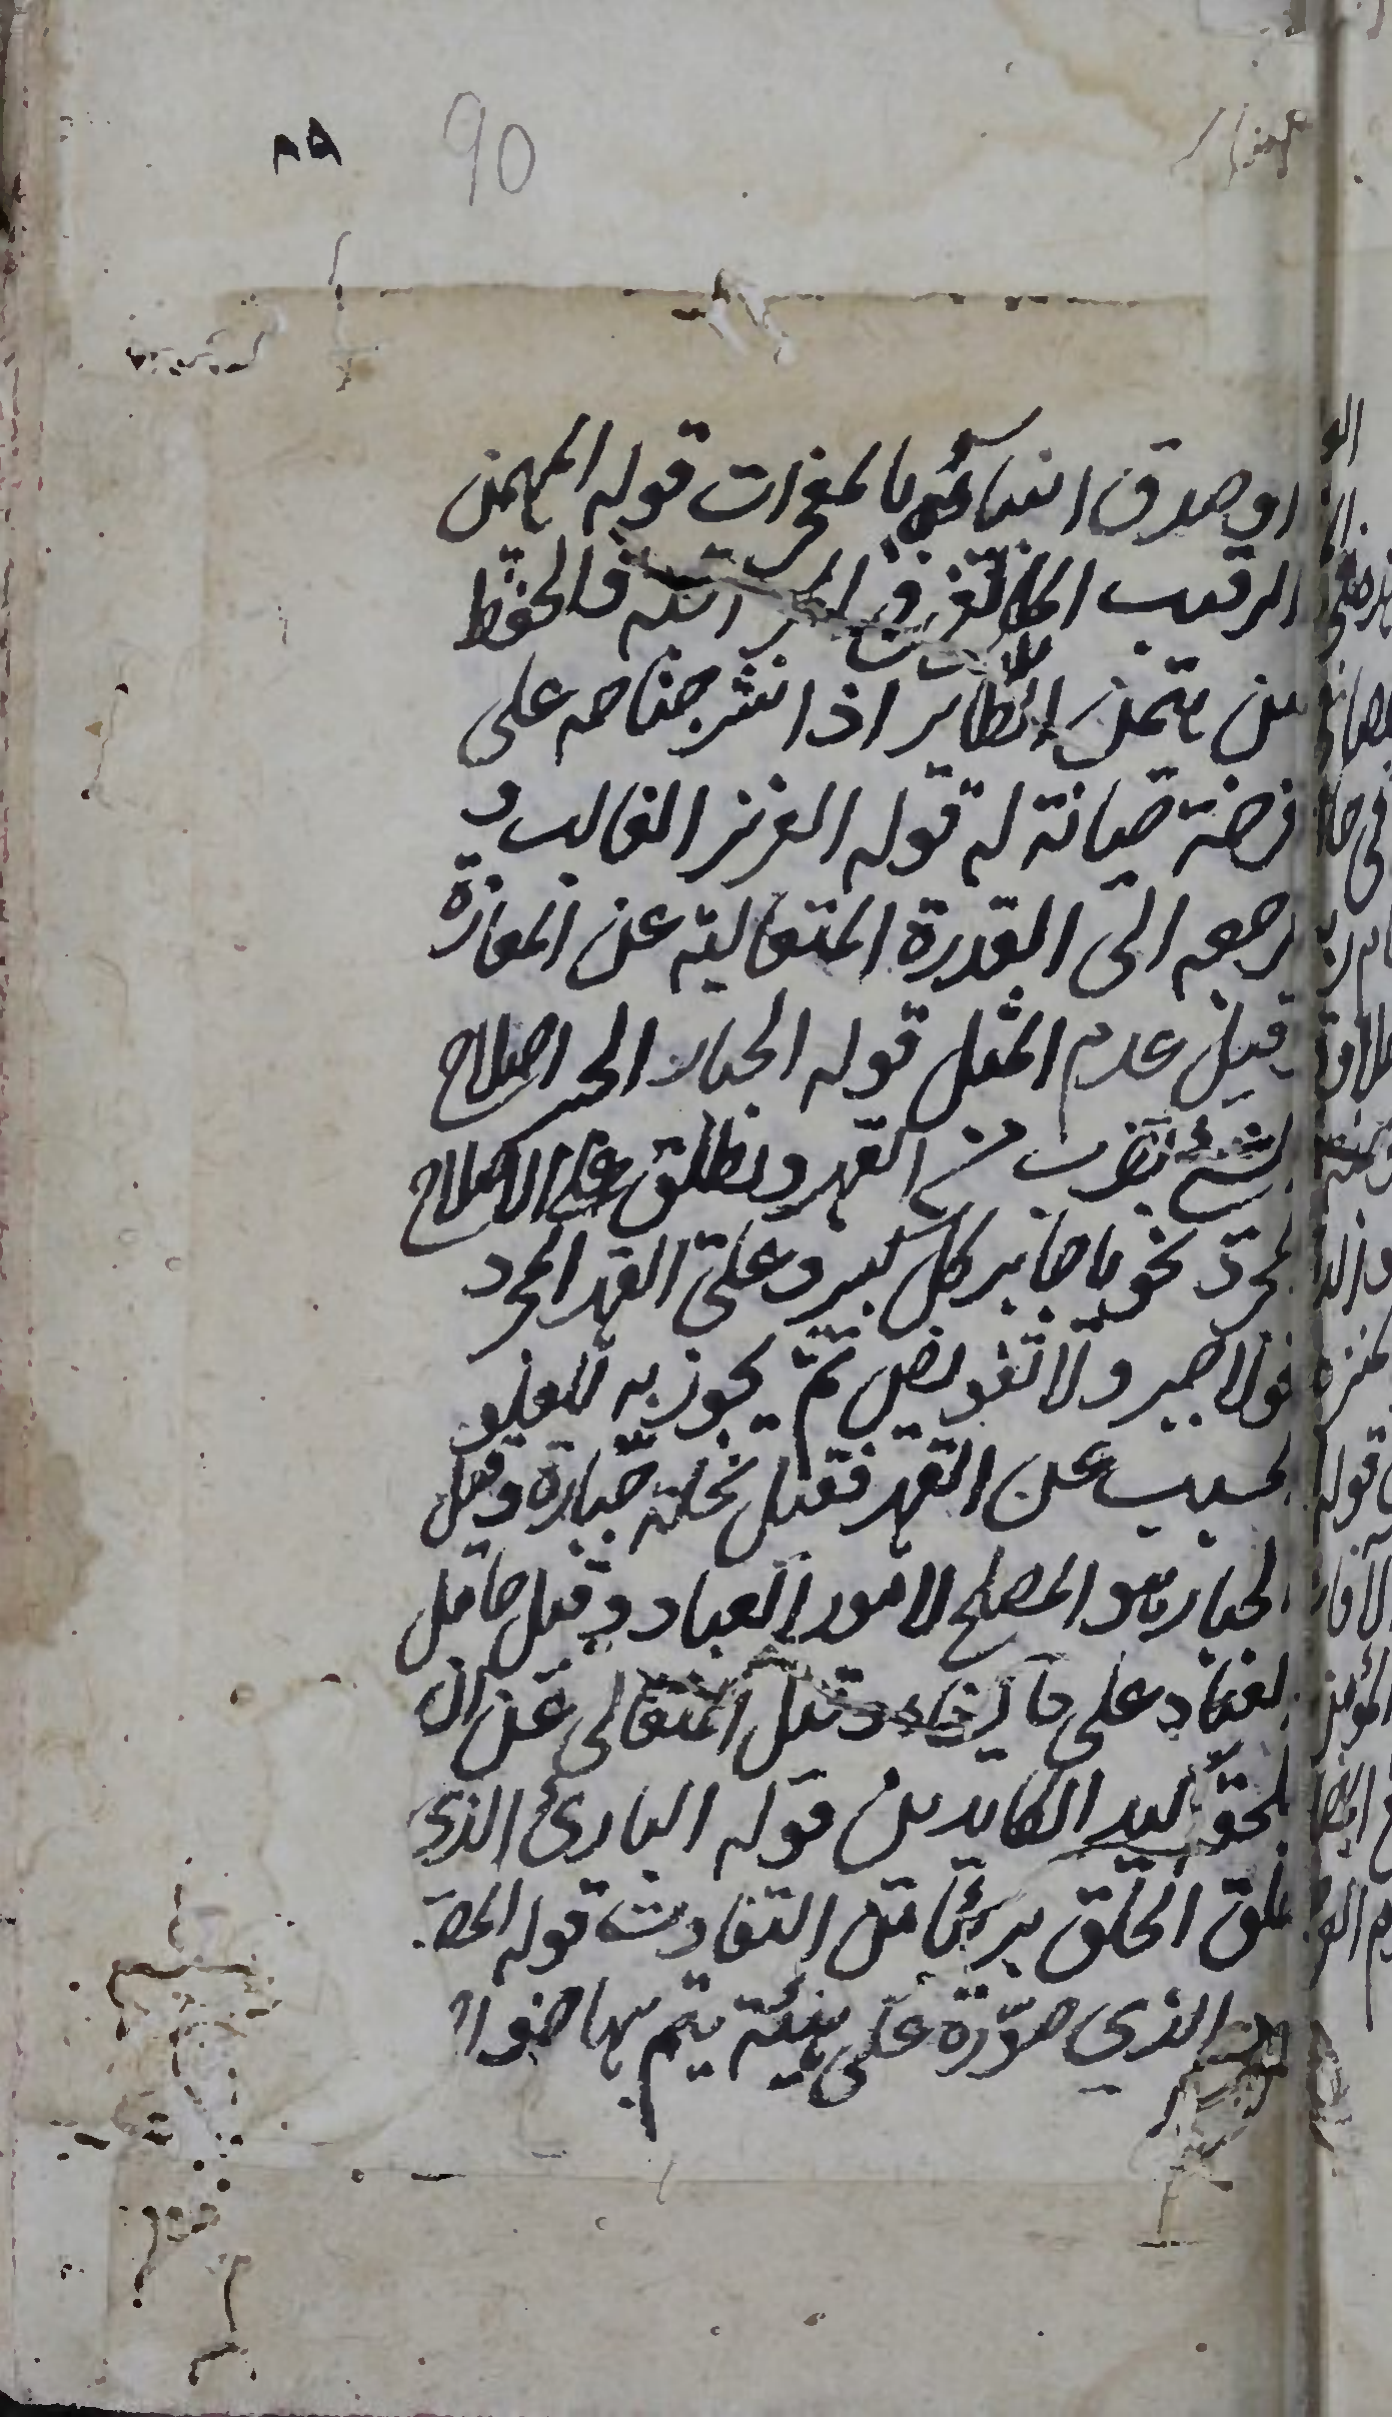 ٨٥ 90
او صدق انبيائه بالمعجزات قوله المهيمن
الرقيب المبالغ في المراقبة والحفظ
من هيمن الطاير اذا نشر جناحه على
فرخه صيانة له قوله العزيز الغالب و
مرجعه الى القدرة المتعالية عن المعازة
وقيل عديم المثل قوله الجبار الجبر اصلاح
الشئ بضرب من القهر ويطلق على الاصلاح
المجرد نحو يا جابر كل كسير وعلى القهر المجرد
نحو لا جبر ولا تفويض ثم تجوز به للعلو
المسبب عن القهر فقيل نخلة جبارة وقيل
الجبار هو المصلح لامور العباد وقيل حامل
العباد على ما يشاء وقيل المتعالى عن ان
يلحقه كيد الكايدين قوله البارئ الذي
خلق الخلق بريئا من التفاوت قوله المصو
الذي صوره على هيئة يتم بها خواص